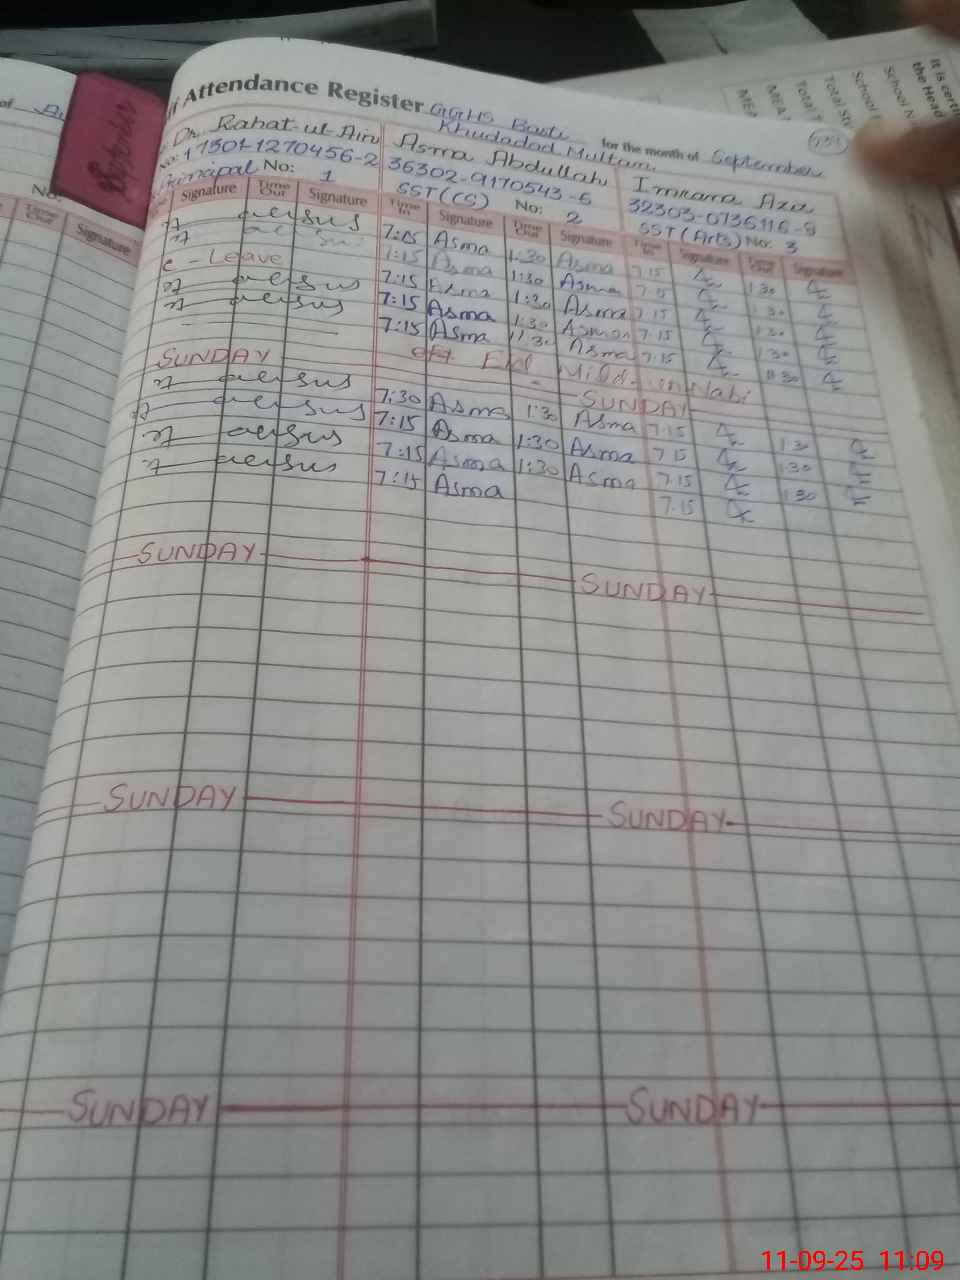 Attendance Register GGHS Basti for the month of September
Khudadad Multan.
Dr. Rahat-ul-Ain Asma Abdullah Imrana Aza
17301-1270456-2 36302-9170543-6 32303-0736116-8
Principal No: 1 SST (CS) No: 2 SST (Arts) No. 3
Signature Time Out Signature Time In Signature Time Out Signature Time In Signature Time Out Signature
7:15 Asma 1:30 Asma 7.15 1 30
7:15 Asma 1:30 Asma 7.15 1.30
e-Leave 7:15 Asma 1:30 Asma 7.15 1.30
7:15 Asma 1:30 Asma 7.15 1.30
7:15 Asma 1:30 Asma 7.15 11:30
Eid Milad un Nabi
SUNDAY SUNDAY
7:30 Asma 1:30 Asma 7.15 1.30
7:15 Asma 1:30 Asma 7.15 1.30
7:15 Asma 1:30 Asma 7.15 1.30
7:15 Asma 7.15
SUNDAY SUNDAY
SUNDAY SUNDAY
SUNDAY SUNDAY
September
Signature
It is certi
the Head
School N
School
Total St
Total T
MEA
MEA
11-09-25 11:09